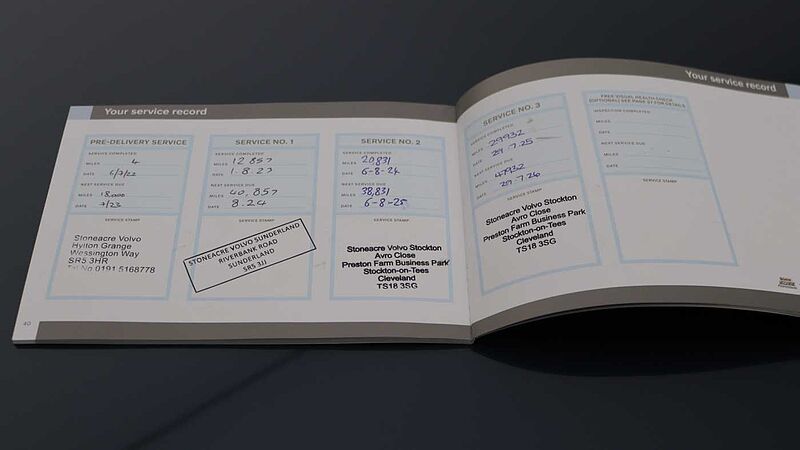 Your service record
PRE-DELIVERY SERVICE
SERVICE COMPLETED
MILES 4
DATE 6/7/22
NEXT SERVICE DUE
MILES 18,000
DATE 7/23
SERVICE STAMP
Stoneacre Volvo
Hylton Grange
Wessington Way
SR5 3HR
Tel No 0191 5168778
SERVICE NO. 1
SERVICE COMPLETED
MILES 12 857
DATE 1-8.23
NEXT SERVICE DUE
MILES 40,857
DATE 8.24
SERVICE STAMP
STONEACRE VOLVO SUNDERLAND
RIVERBANK ROAD
SUNDERLAND
SR5 3JJ
SERVICE NO. 2
SERVICE COMPLETED
MILES 20,831
DATE 6-8-24
NEXT SERVICE DUE
MILES 38,831
DATE 6-8-25
SERVICE STAMP
Stoneacre Volvo Stockton
Avro Close
Preston Farm Business Park
Stockton-on-Tees
Cleveland
TS18 3SG
40
Your service record
SERVICE NO. 3
SERVICE COMPLETED
MILES 29932
DATE 29.7.25
NEXT SERVICE DUE
MILES 47932
DATE 29.7.26
SERVICE STAMP
Stoneacre Volvo Stockton
Avro Close
Preston Farm Business Park
Stockton-on-Tees
Cleveland
TS18 3SG
FREE VISUAL HEALTH CHECK
(OPTIONAL) SEE PAGE 57 FOR DETAILS
INSPECTION COMPLETED
MILES
DATE
NEXT SERVICE DUE
MILES
DATE
SERVICE STAMP